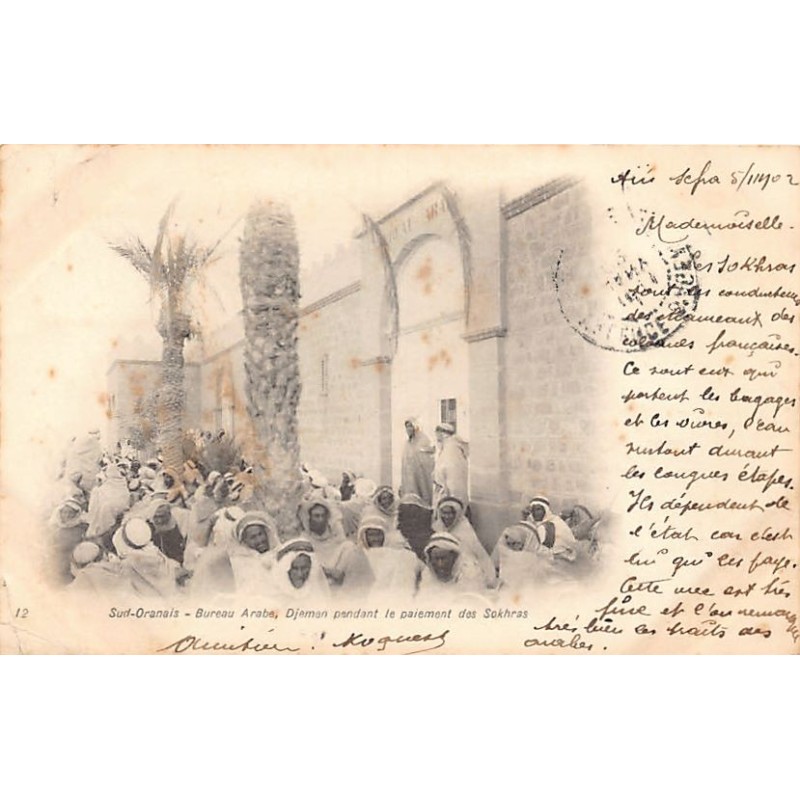 Aïn Sefra 5/11/1902
Mademoiselle.
Les Sokhras
sont les conducteurs
des chameaux des
colonnes françaises.
Ce sont eux qui
portent les bagages
et les vivres, l'eau
surtout durant
les longues étapes.
Ils dépendent de
l'état car c'est
lui qui les paye.
Cette vue est très
fine et l'on remarque
très bien les traits des
arabes.
12 Sud-Oranais - Bureau Arabe, Djemen pendant le paiement des Sokhras